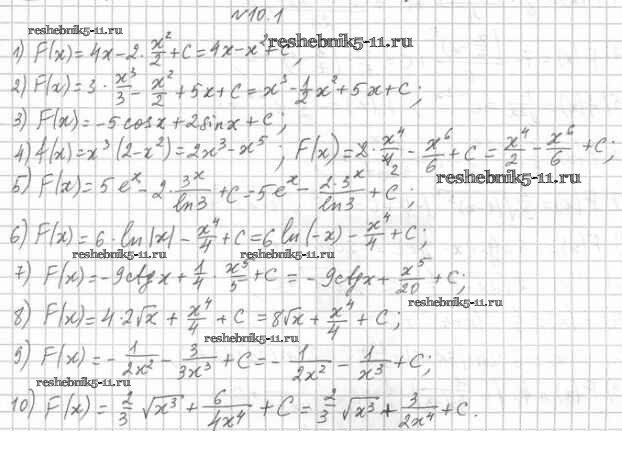 №10.1
reshebnik5-11.ru
1) F(x) = 4x - 2 · x²/2 + C = 4x - x² + C;
reshebnik5-11.ru
2) F(x) = 3 · x³/3 - x²/2 + 5x + C = x³ - 1/2 x² + 5x + C;
3) F(x) = -5cosx + 2sinx + C;
4) f(x) = x³(2-x²) = 2x³ - x⁵; F(x) = 2 · x⁴/4 2 - x⁶/6 + C = x⁴/2 - x⁶/6 + C;
reshebnik5-11.ru
5) F(x) = 5eˣ - 2 · 3ˣ/ln3 + C = 5eˣ - 2·3ˣ/ln3 + C;
6) F(x) = 6 · ln|x| - x⁴/4 + C = 6ln(-x) - x⁴/4 + C;
reshebnik5-11.ru reshebnik5-11.ru
7) F(x) = -9ctgx + 1/4 · x⁵/5 + C = -9ctgx + x⁵/20 + C;
reshebnik5-11.ru
8) F(x) = 4·2√x + x⁴/4 + C = 8√x + x⁴/4 + C;
reshebnik5-11.ru
9) F(x) = - 1/2x² - 3/3x³ + C = - 1/2x² - 1/x³ + C;
reshebnik5-11.ru
10) F(x) = 2/3 √x³ + 6/4x⁴ + C = 2/3 √x³ + 3/2x⁴ + C.